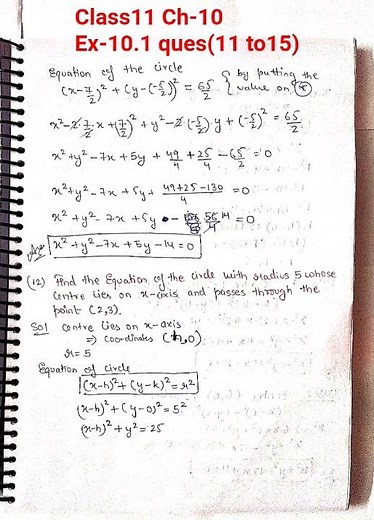 Class11 Ch-10
Ex-10.1 ques(11 to15)
Equation of the circle
(x-7/2)² + (y-(-5/2))² = 65/2 { by putting the value on ④
x²-2·7/2·x+(7/2)²+y²-2(-5/2)·y+(-5/2)² = 65/2
x²+y²-7x+5y+49/4+25/4-65/2=0
x²+y²-7x+5y+(49+25-130)/4=0
x²+y²-7x+5y-56/4 14=0
Ans x²+y²-7x+5y-14=0
(12) Find the Equation of the circle with radius 5 whose
centre lies on x-axis and passes through the
point (2,3).
Sol centre lies on x-axis
⇒ coordinates (h,0)
r=5
Equation of circle
(x-h)²+(y-k)²=r²
(x-h)²+(y-0)²=5²
(x-h)²+y²=25